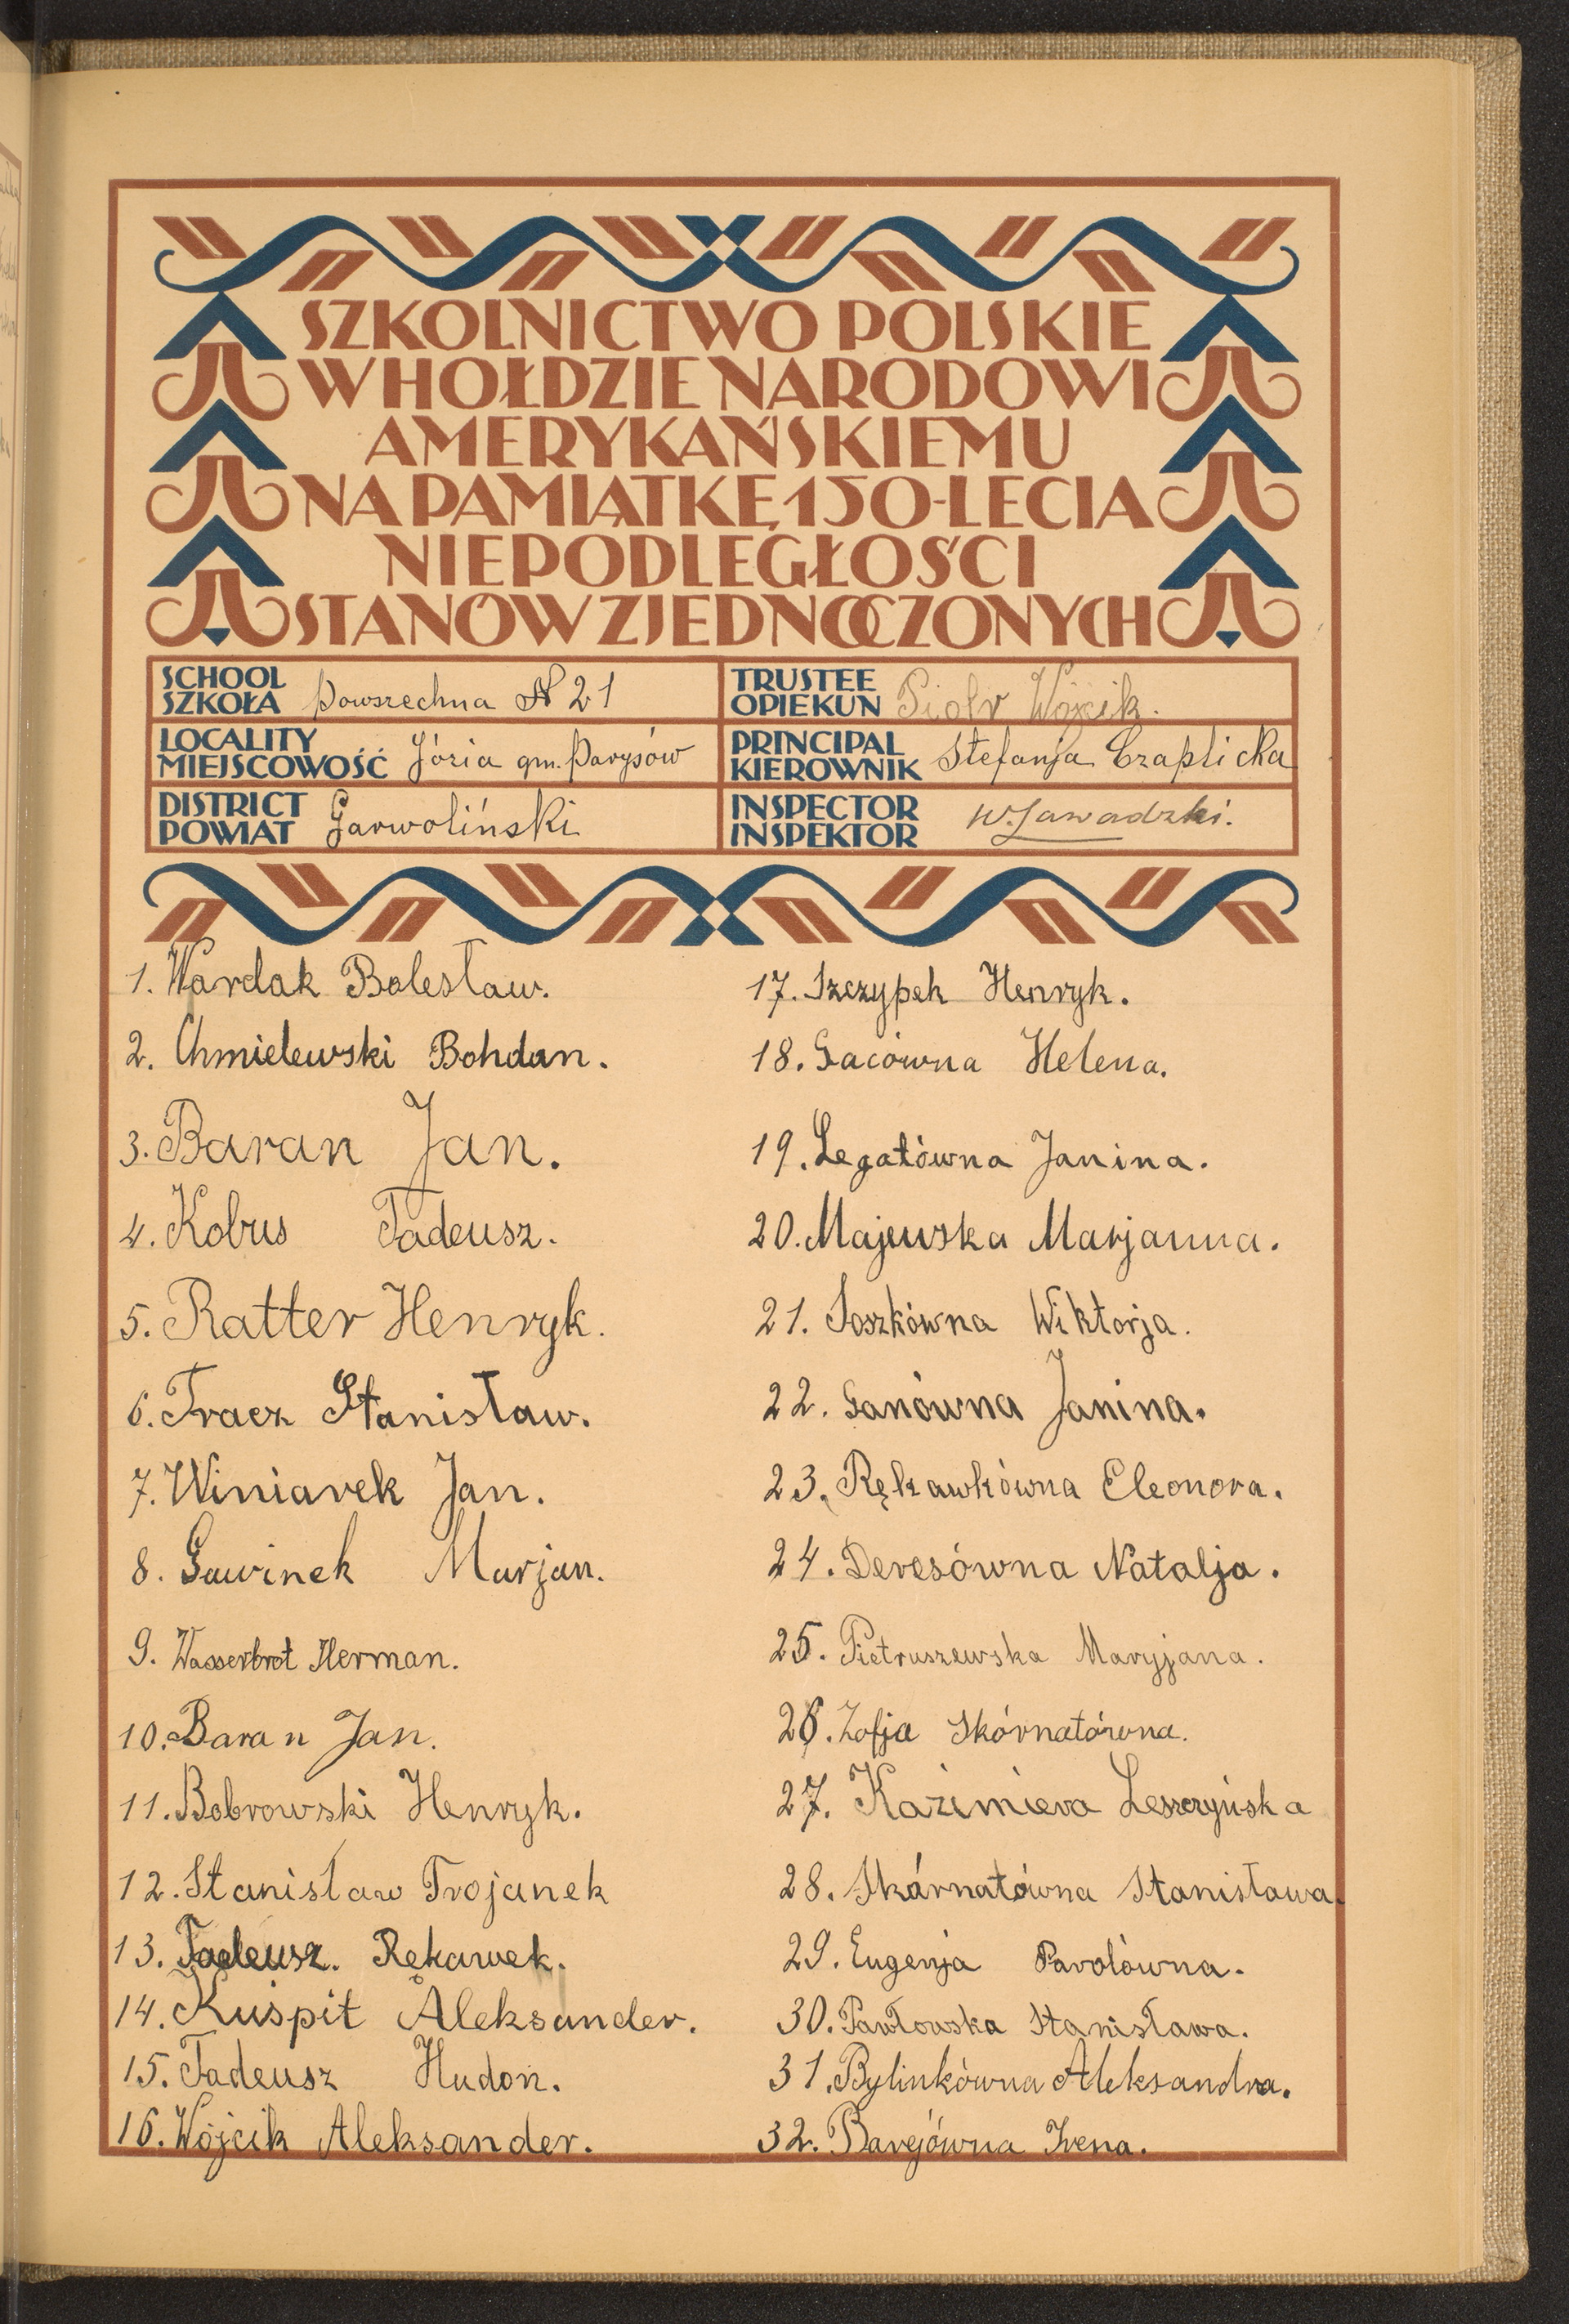 SZKOLNICTWO POLSKIE
W HOŁDZIE NARODOWI
AMERYKAŃSKIEMU
NA PAMIĄTKĘ 150-LECIA
NIEPODLEGŁOŚCI
STANÓW ZJEDNOCZONYCH
SCHOOL
SZKOŁA powszechna № 21
TRUSTEE
OPIEKUN Piotr Wójcik.
LOCALITY
MIEJSCOWOŚĆ Józia gm. Parysów
PRINCIPAL
KIEROWNIK Stefanja Czaplicka
DISTRICT
POWIAT Garwoliński
INSPECTOR
INSPEKTOR W. Zawadzki.
1. Wardak Bolesław.
2. Chmielewski Bohdan.
3. Baran Jan.
4. Kobus Tadeusz.
5. Ratter Henryk.
6. Tracz Stanisław.
7. Winiarek Jan.
8. Gawinek Marjan.
9. Wasserbrot Herman.
10. Baran Jan.
11. Bobrowski Henryk.
12. Stanisław Trojanek
13. Tadeusz. Rękawek.
14. Kuśpit Aleksander.
15. Tadeusz Hudoń.
16. Wójcik Aleksander.
17. Szczypek Henryk.
18. Gacówna Helena.
19. Legatówna Janina.
20. Majewska Marjanna.
21. Soszkówna Wiktorja.
22. Ganówna Janina.
23. Rękawkówna Eleonora.
24. Deresówna Natalja.
25. Pietruszewska Maryjana.
26. Zofja Skórnatówna.
27. Kazimiera Leszczyńska
28. Skárnatówna Stanisława.
29. Eugenja Parolówna.
30. Pawłowska Stanisława.
31. Bylinkówna Aleksandra.
32. Barejówna Irena.